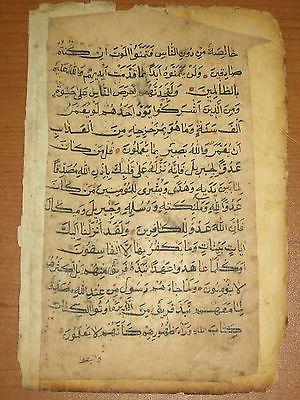 خالصة من دون الناس فتمنوا الموت ان كنتم
صادقين ولن يتمنوه ابدا بما قدمت ايديهم والله عليم
بالظالمين ولتجدنهم احرص الناس على حيوة
ومن الذين اشركوا يود احدهم لو يعمر
الف سنة وما هو بمزحزحه من العذاب
ان يعمر والله بصير بما يعملون قل من كان
عدوا لجبريل فانه نزله على قلبك باذن الله مصدقا
لما بين يديه وهدى وبشرى للمؤمنين من كان
عدوا لله وملئكته ورسله وجبريل وميكال
فان الله عدو للكافرين ولقد انزلنا اليك
ايات بينات وما يكفر بها الا الفاسقون
وكلما عاهدوا عهدا نبذه فريق منهم بل اكثرهم
لا يؤمنون ولما جاءهم رسول من عند الله مصدق
لما معهم نبذ فريق من الذين اوتوا الكتاب
كتاب الله وراء ظهورهم كانهم لا يعلمون
واتبعوا